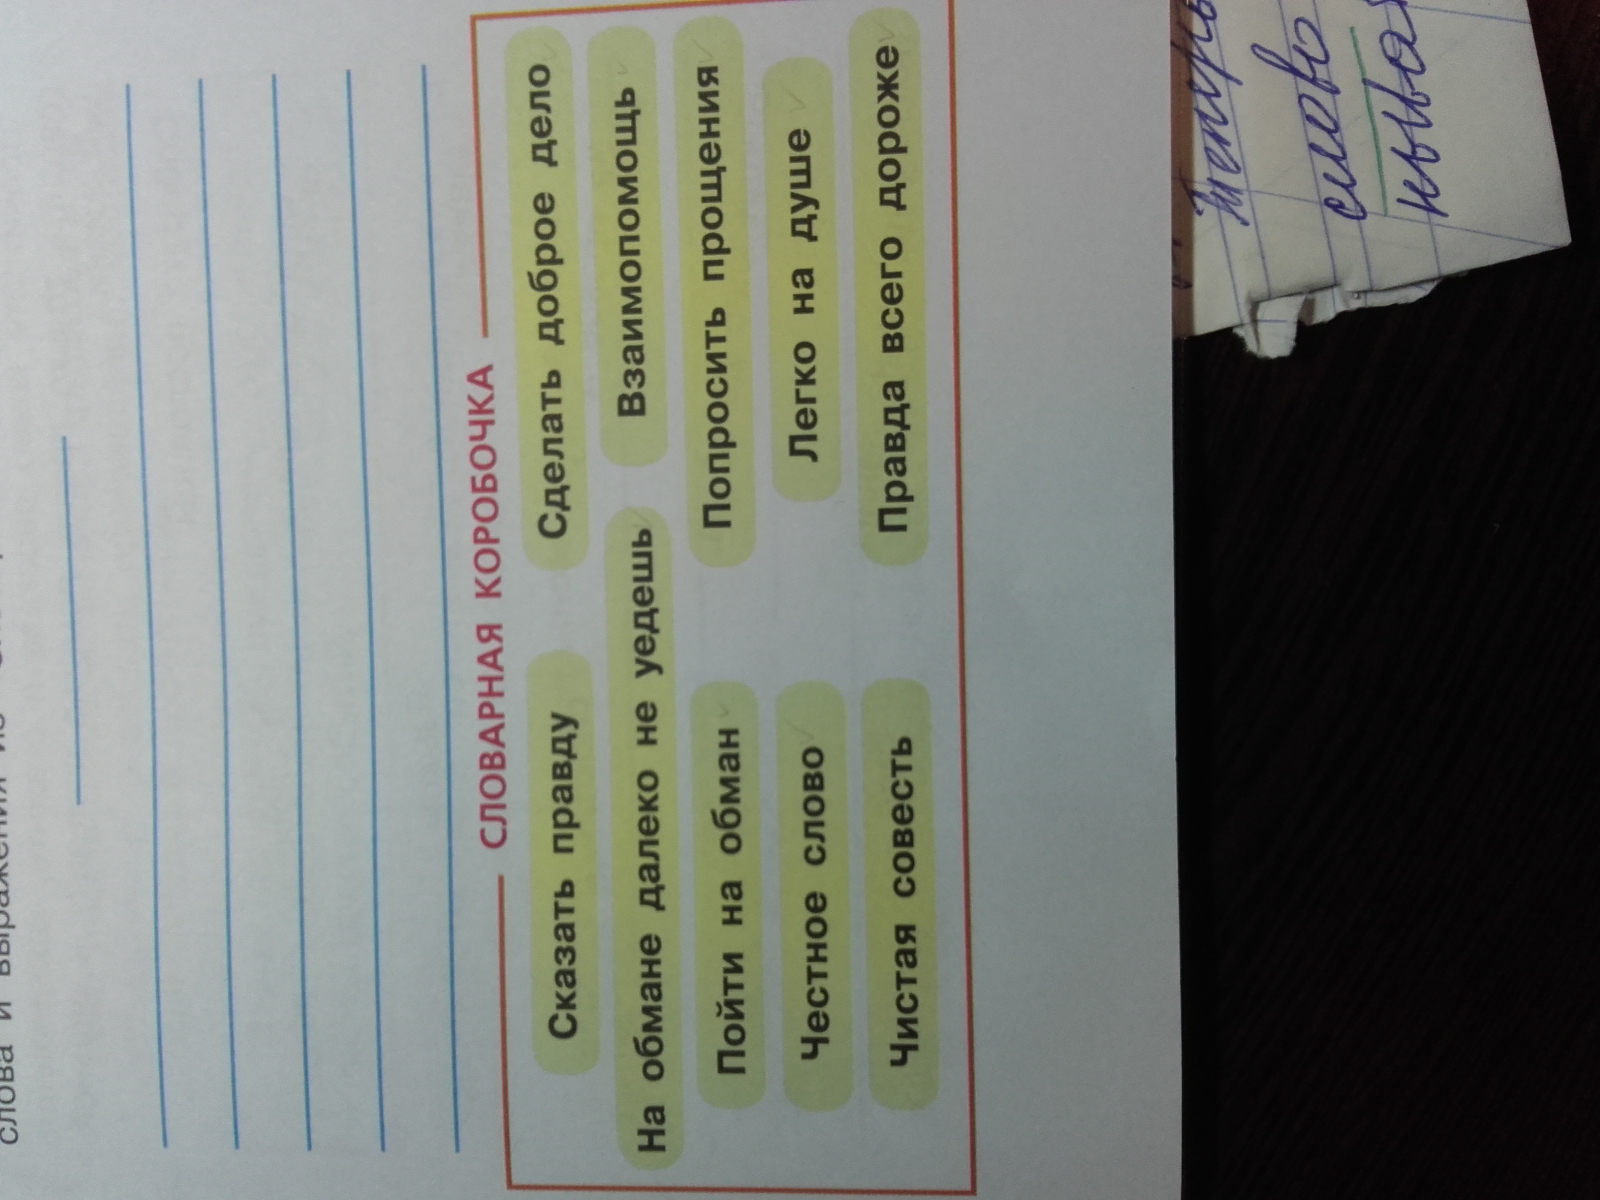 слова и выражения из
СЛОВАРНАЯ КОРОБОЧКА
Сказать правду Сделать доброе дело
На обмане далеко не уедешь Взаимопомощь
Пойти на обман Попросить прощения
Честное слово Легко на душе
Чистая совесть Правда всего дороже
Теперь